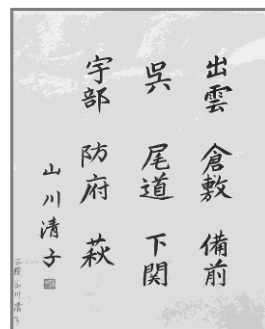 出雲 倉敷 備前
呉 尾道 下関
宇部 防府 萩
山川清子